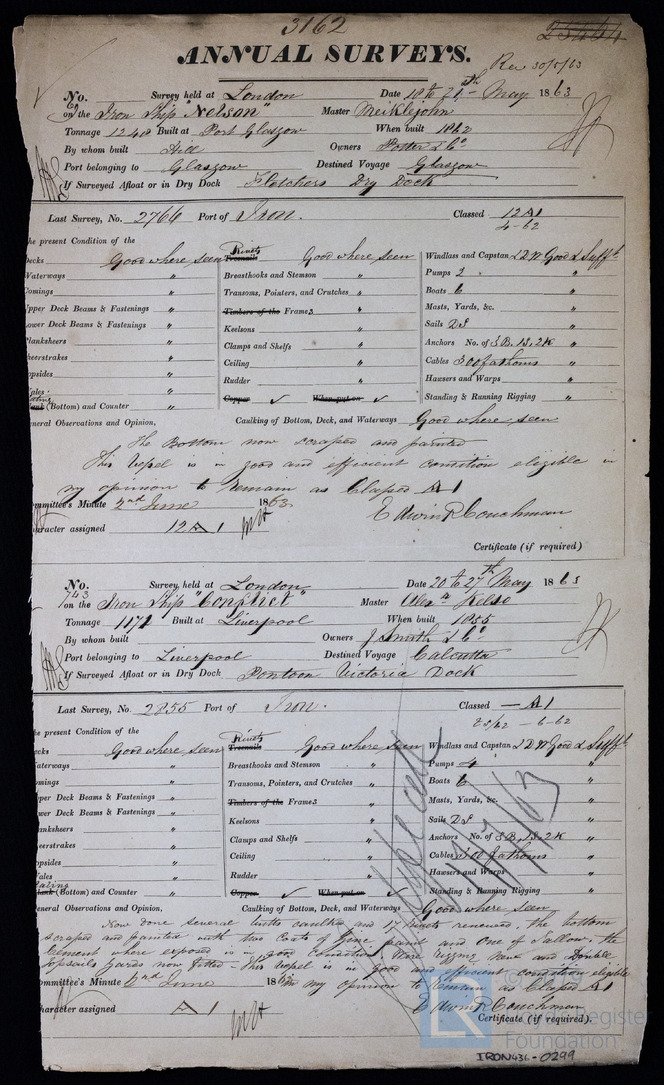 3162
ANNUAL SURVEYS.
Rec 30/5/63
No. Survey held at London Date 18 to 21st May 1863
on the Iron Ship "Nelson" Master Meiklejohn
Tonnage 1248 Built at Port Glasgow When built 1862
By whom built Hill Owners Potter & Co
Port belonging to Glasgow Destined Voyage Glasgow
If Surveyed Afloat or in Dry Dock Fletchers Dry Dock
Last Survey, No. 2766 Port of Iron. Classed 12 A1
4-62
he present Condition of the
ecks Good where seen
Waterways "
omings "
pper Deck Beams & Fastenings "
ower Deck Beams & Fastenings "
lanksheers "
heerstrakes "
opsides "
ales "
(Bottom) and Counter "
Rivets
Treenails Good where seen
Breasthooks and Stemson "
Transoms, Pointers, and Crutches "
Timbers of the Frames "
Keelsons "
Clamps and Shelfs "
Ceiling "
Rudder "
Copper ✓ When put on ✓
Windlass and Capstan 2 Good & Suff
Pumps 2 "
Boats 6 "
Masts, Yards, &c. "
Sails "
Anchors No. of 3B, 1S, 2K "
Cables 300 fathoms "
Hawsers and Warps "
Standing & Running Rigging "
eneral Observations and Opinion, Caulking of Bottom, Deck, and Waterways Good where seen
The Bottom now scraped and painted
This Vessel is in good and efficient condition eligible in
my opinion to remain as Classed A1
ommittee's Minute 2nd June 1863
Edwin R Couchman
aracter assigned 12 A 1
Certificate (if required)
No. Survey, held at London Date 20 to 27th May 1863
743
on the Iron Ship "Conflict" Master Alexr Kelso
Tonnage 1172 Built at Liverpool When built 1855
By whom built Owners J Smith & Co
Port belonging to Liverpool Destined Voyage Calcutta
If Surveyed Afloat or in Dry Dock Pontoon Victoria Dock
Last Survey, No. 2855 Port of Iron. Classed — A1
6-62
he present Condition of the
ecks Good where seen
aterways "
mings "
pper Deck Beams & Fastenings "
wer Deck Beams & Fastenings "
anksheers "
eerstrakes "
opsides "
ales "
(Bottom) and Counter "
Rivets
Treenails Good where seen
Breasthooks and Stemson "
Transoms, Pointers, and Crutches "
Timbers of the Frames "
Keelsons "
Clamps and Shelfs "
Ceiling "
Rudder "
Copper ✓ When put on ✓
Windlass and Capstan 2 Good & Suff
Pumps 4 "
Boats 6 "
Masts, Yards, &c. "
Sails "
Anchors No. of 3B, 1S, 2K "
Cables 300 fathoms "
Hawsers and Warps "
Standing & Running Rigging "
eneral Observations and Opinion, Caulking of Bottom, Deck, and Waterways Good where seen
Now done several butts caulked and 17 Rivets renewed, the bottom
scraped and painted with two Coats of Zinc paint and One of Tallow, the
Cement where exposed is in good condition, Wire Rigging new and Double
Topsails Yards now fitted - This Vessel is in good and efficient condition eligible
ommittee's Minute 2nd June 1863 in my opinion to remain as Classed A1
Edwin R Couchman
haracter assigned A 1
Certificate (if required).
Lloyd's Register
Foundation
IRON436-0299